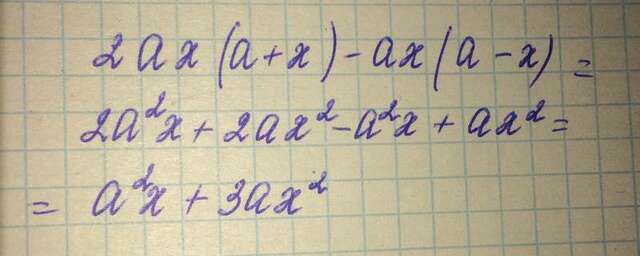 2ax(a+x)-ax(a-x)=
2a²x+2ax²-a²x+ax²=
=a²x+3ax²